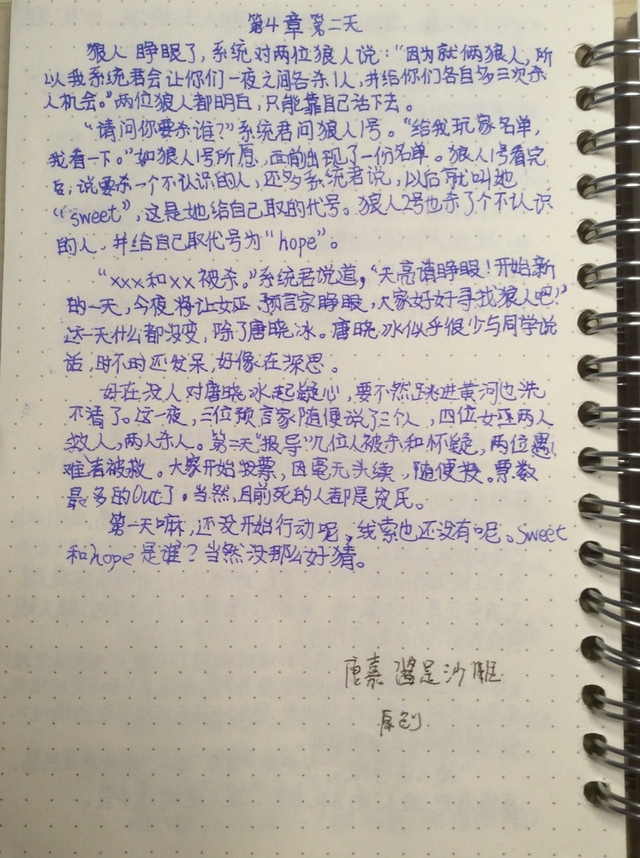 第4章 第二天
狼人 睁眼了,系统对两位狼人说:“因为就俩狼人,所
以我系统君会让你们一夜之间各杀1人,并给你们各自多三次杀
人机会。”两位狼人都明白,只能靠自己活下去。
“请问你要杀谁?”系统君问狼人1号。“给我玩家名单,
我看一下。”如狼人1号所愿,面前出现了一份名单。狼人1号看完
后,说要杀一个不认识的人,还多系统君说,以后就叫她
“sweet”,这是她给自己取的代号。狼人2号也杀了个不认识
的人,并给自己取代号为“hope”。
“xxx和xx被杀。”系统君说道,“天亮请睁眼!开始新
的一天,今夜将让女巫、预言家睁眼,大家好好寻找狼人吧!”
这一天什么都没变,除了唐晓冰。唐晓冰似乎很少与同学说
话,时不时还发呆,好像在深思。
好在没人对唐晓冰起疑心,要不然跳进黄河也洗
不清了。这一夜,三位预言家随便说了三个人,四位女巫两人
救人,两人杀人。第二天“报导”几位人被杀和怀疑,两位遇
难者被救。大家开始投票,因毫无头续,随便投。票数
最多的Out了。当然,目前死的人都是贫民。
第一天嘛,还没开始行动呢,线索也还没有呢。Sweet
和hope是谁?当然没那么好猜。
唐嘉 酱是沙雕
原创